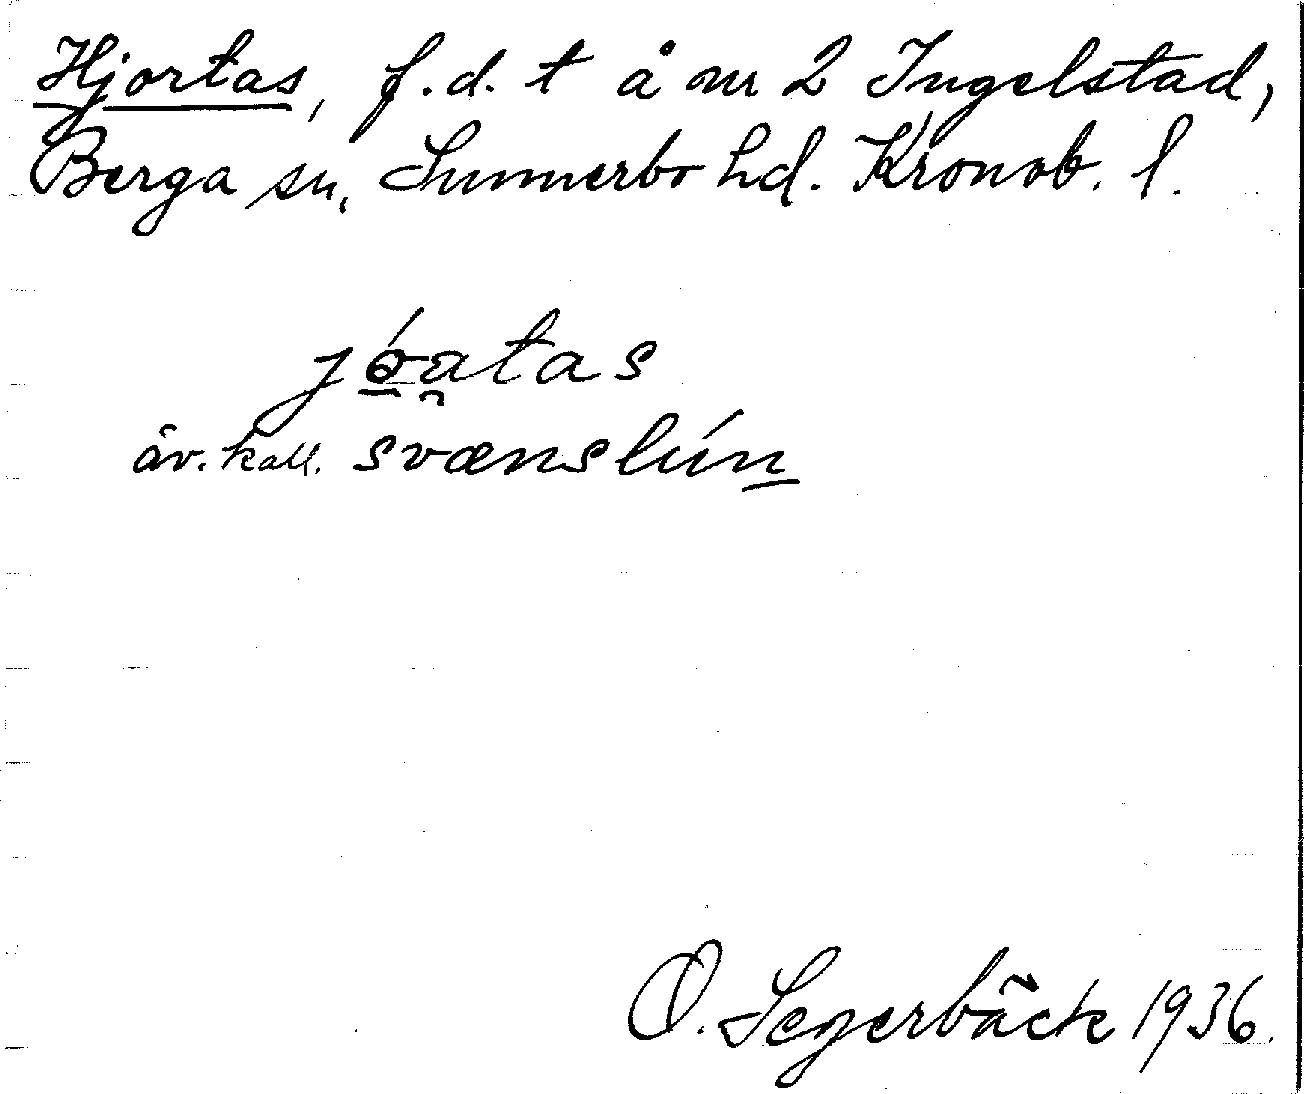 Hjortas, f.d. t å nr 2 Ingelstad,
Berga sn, Sunnerbo hd. Kronob. l.
jó̲a̯tas
äv. kall. svænslún̲
O. Segerbäck 1936.